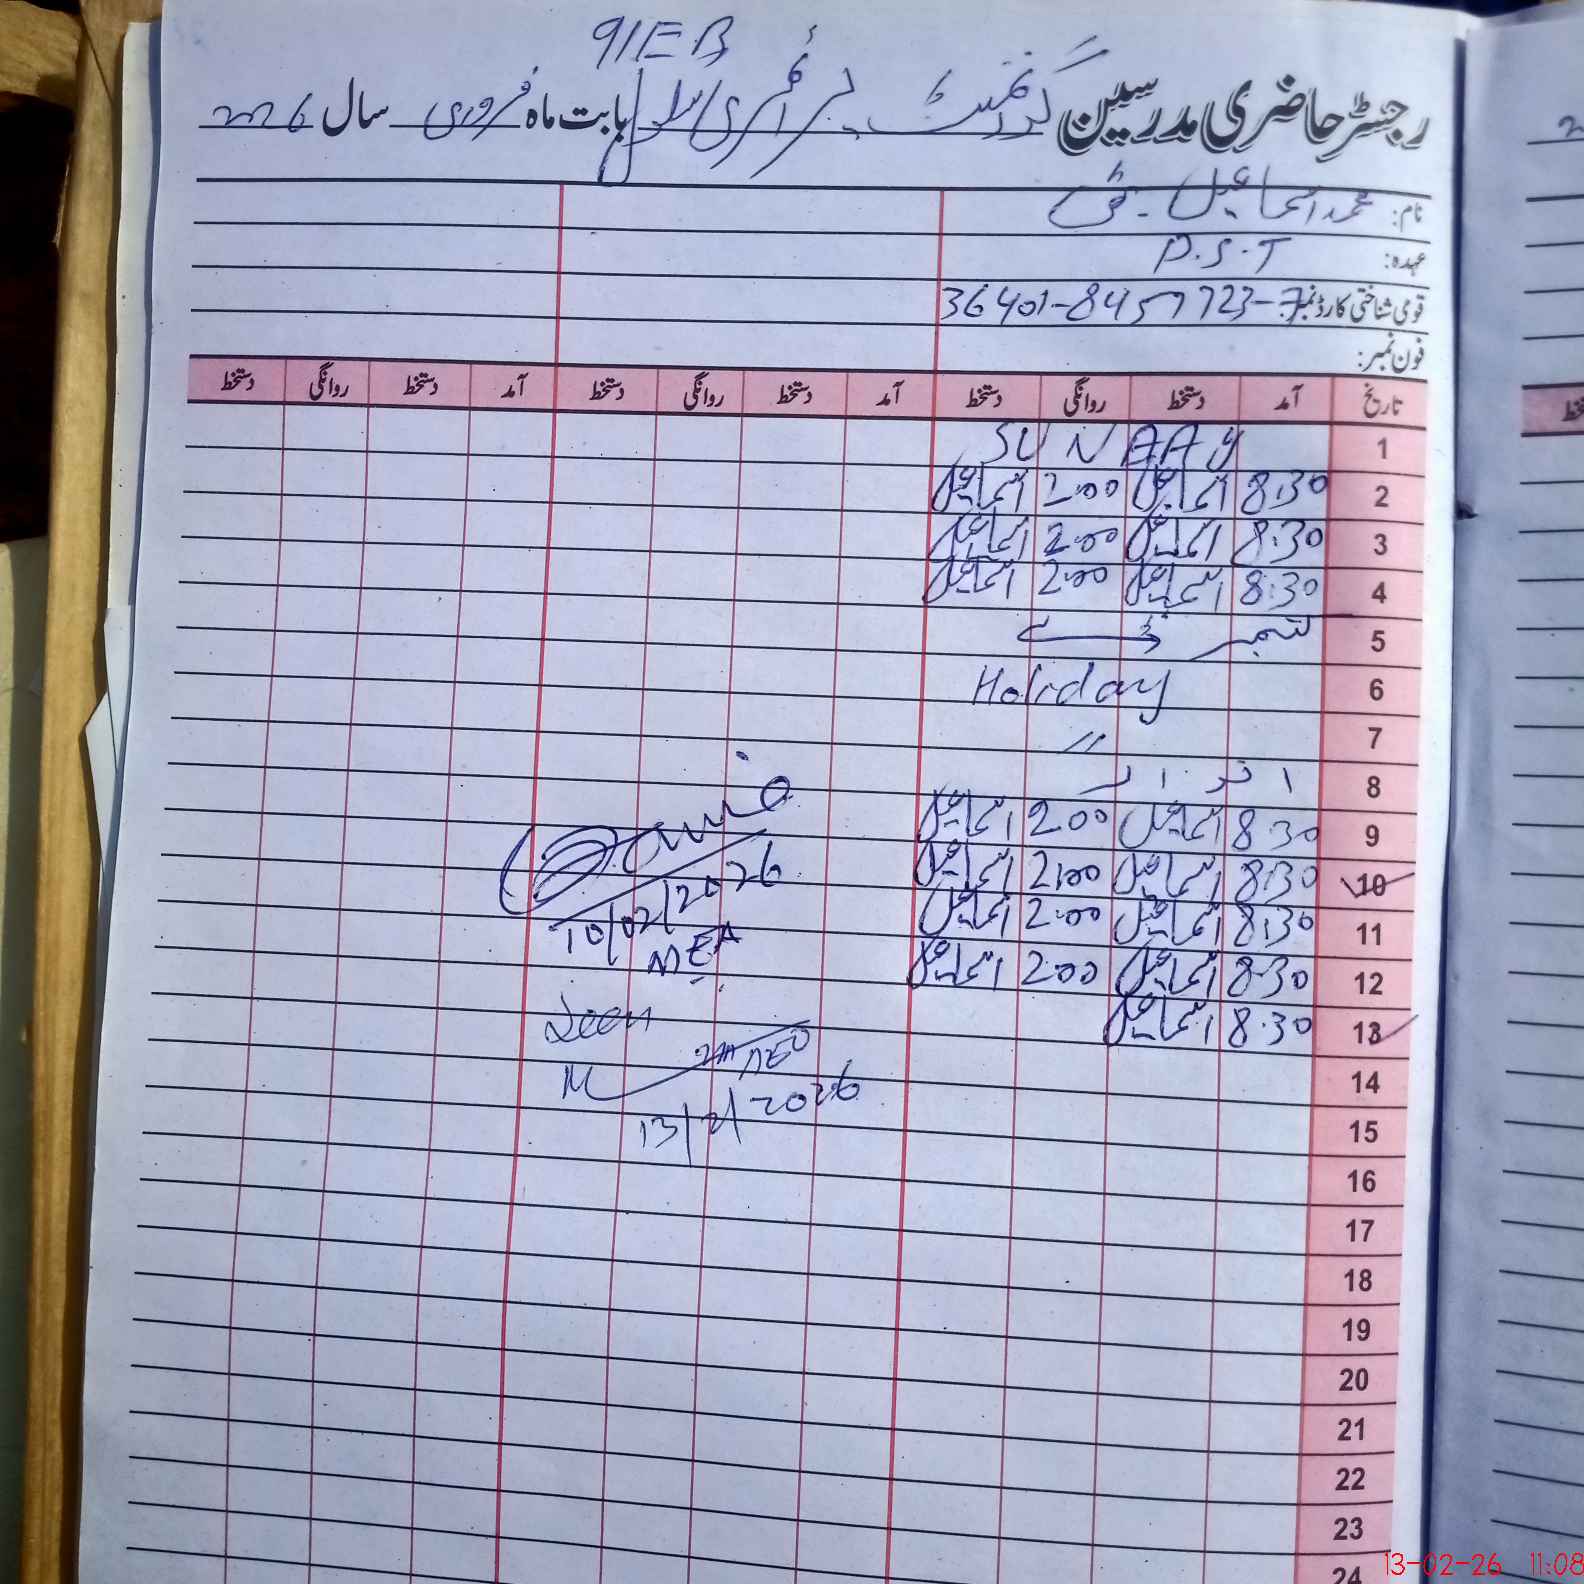 91EB
رجسٹر حاضری مدرسین گورنمنٹ پرائمری سکول بابت ماہ فروری سال 2026
نام: محمد اسماعیل
عہدہ: P.S.T
قومی شناختی کارڈ نمبر: 36401-8457723-7
فون نمبر:
تاریخ آمد دستخط روانگی دستخط آمد دستخط روانگی دستخط آمد دستخط روانگی دستخط
1 SUNDAY
2 8:30 اسماعیل 2:00 اسماعیل
3 8:30 اسماعیل 2:00 اسماعیل
4 8:30 اسماعیل 2:00 اسماعیل
5 کشمیر ڈے
6 Holiday
7 //
8 اتوار
9 8:30 اسماعیل 2:00 اسماعیل
10 8:30 اسماعیل 2:00 اسماعیل
11 8:30 اسماعیل 2:00 اسماعیل
12 8:30 اسماعیل 2:00 اسماعیل
13 8:30 اسماعیل
10/02/2026
MEA
Seen
AEO
13/2/2026
14
15
16
17
18
19
20
21
22
23
24
13-02-26 11:08